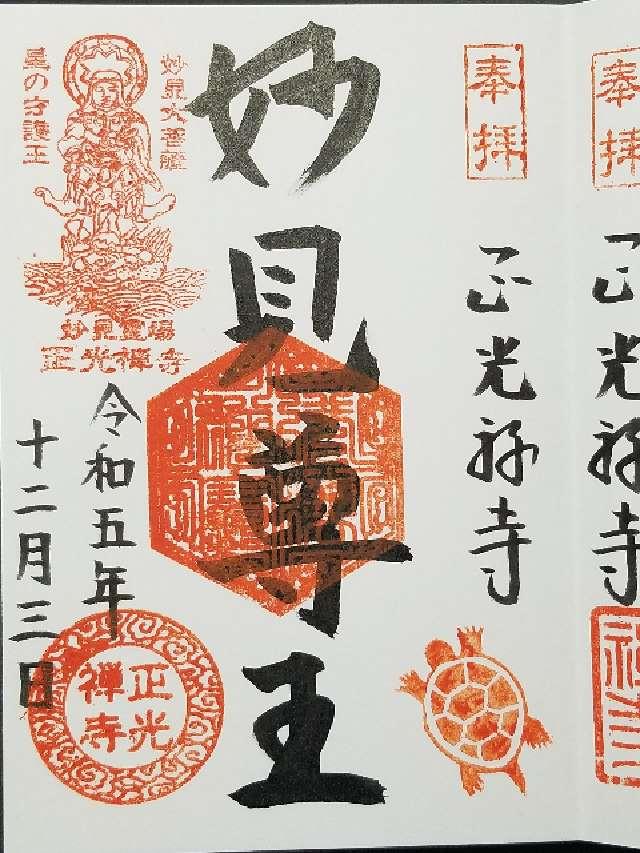 奉拝
奉拝
正光禅寺
正光禅寺
妙見尊王
妙見大菩薩
星の守護王
妙見霊場
正光禅寺
令和五年
十二月三日
正光禅寺